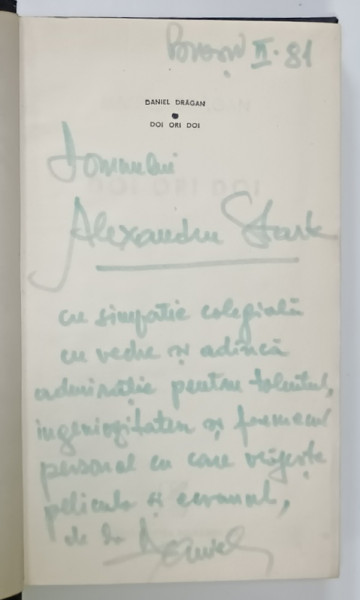 Brașov II. 81
DANIEL DRĂGAN
DOI ORI DOI
Domnului
Alexandru Stark
cu simpatie colegială
cu veche și adîncă
admirație pentru talentul,
ingeniozitatea și farmecul
personal cu care vrăjește
pelicula și ecranul,
de la Daniel